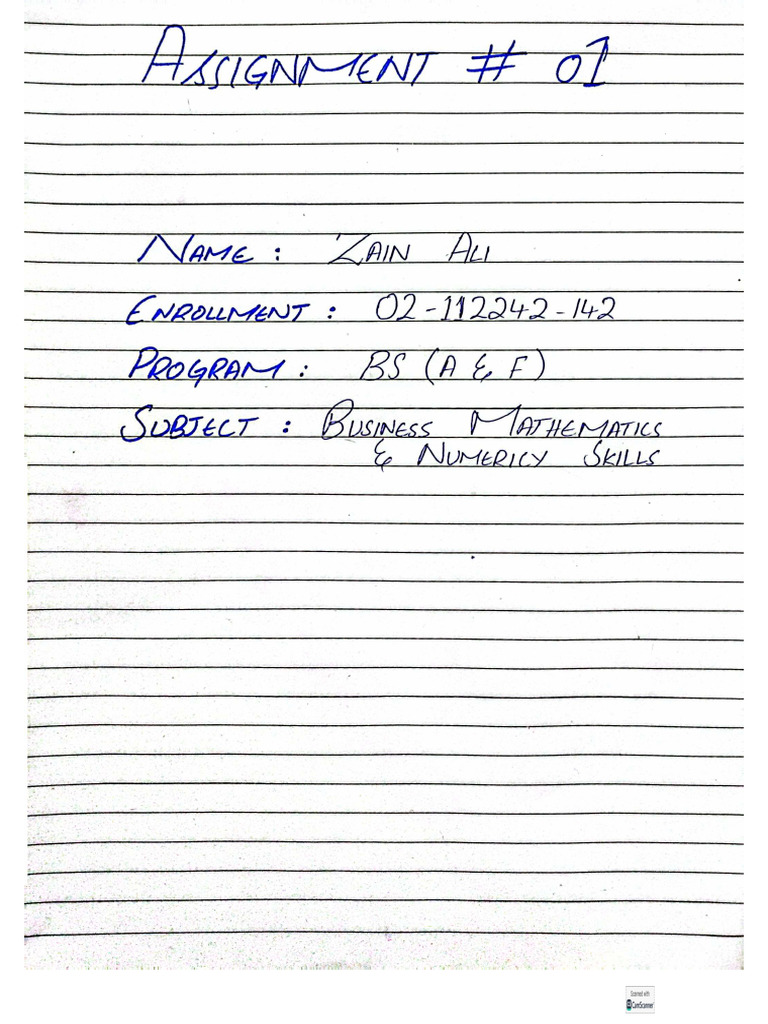 ASSIGNMENT # 01
NAME : ZAIN ALI
ENROLLMENT : 02-112242-142
PROGRAM : BS (A & F)
SUBJECT : BUSINESS MATHEMATICS
& NUMERICY SKILLS
Scanned with
CamScanner